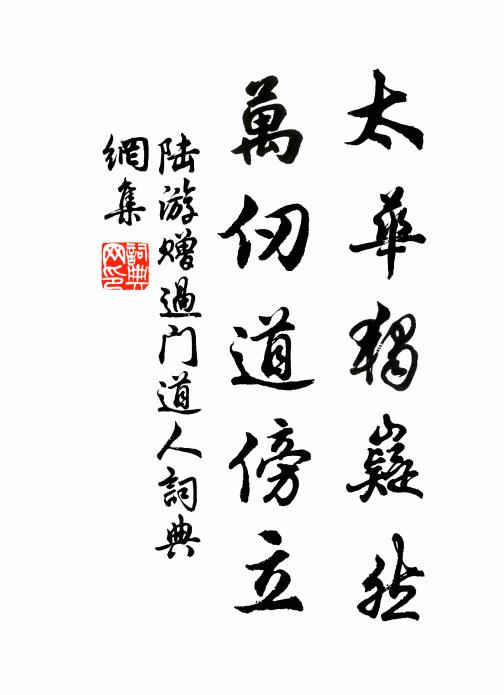 太華獨嶷然
萬仞道傍立
陆游赠過门道人詞典
網集
詞典
网印